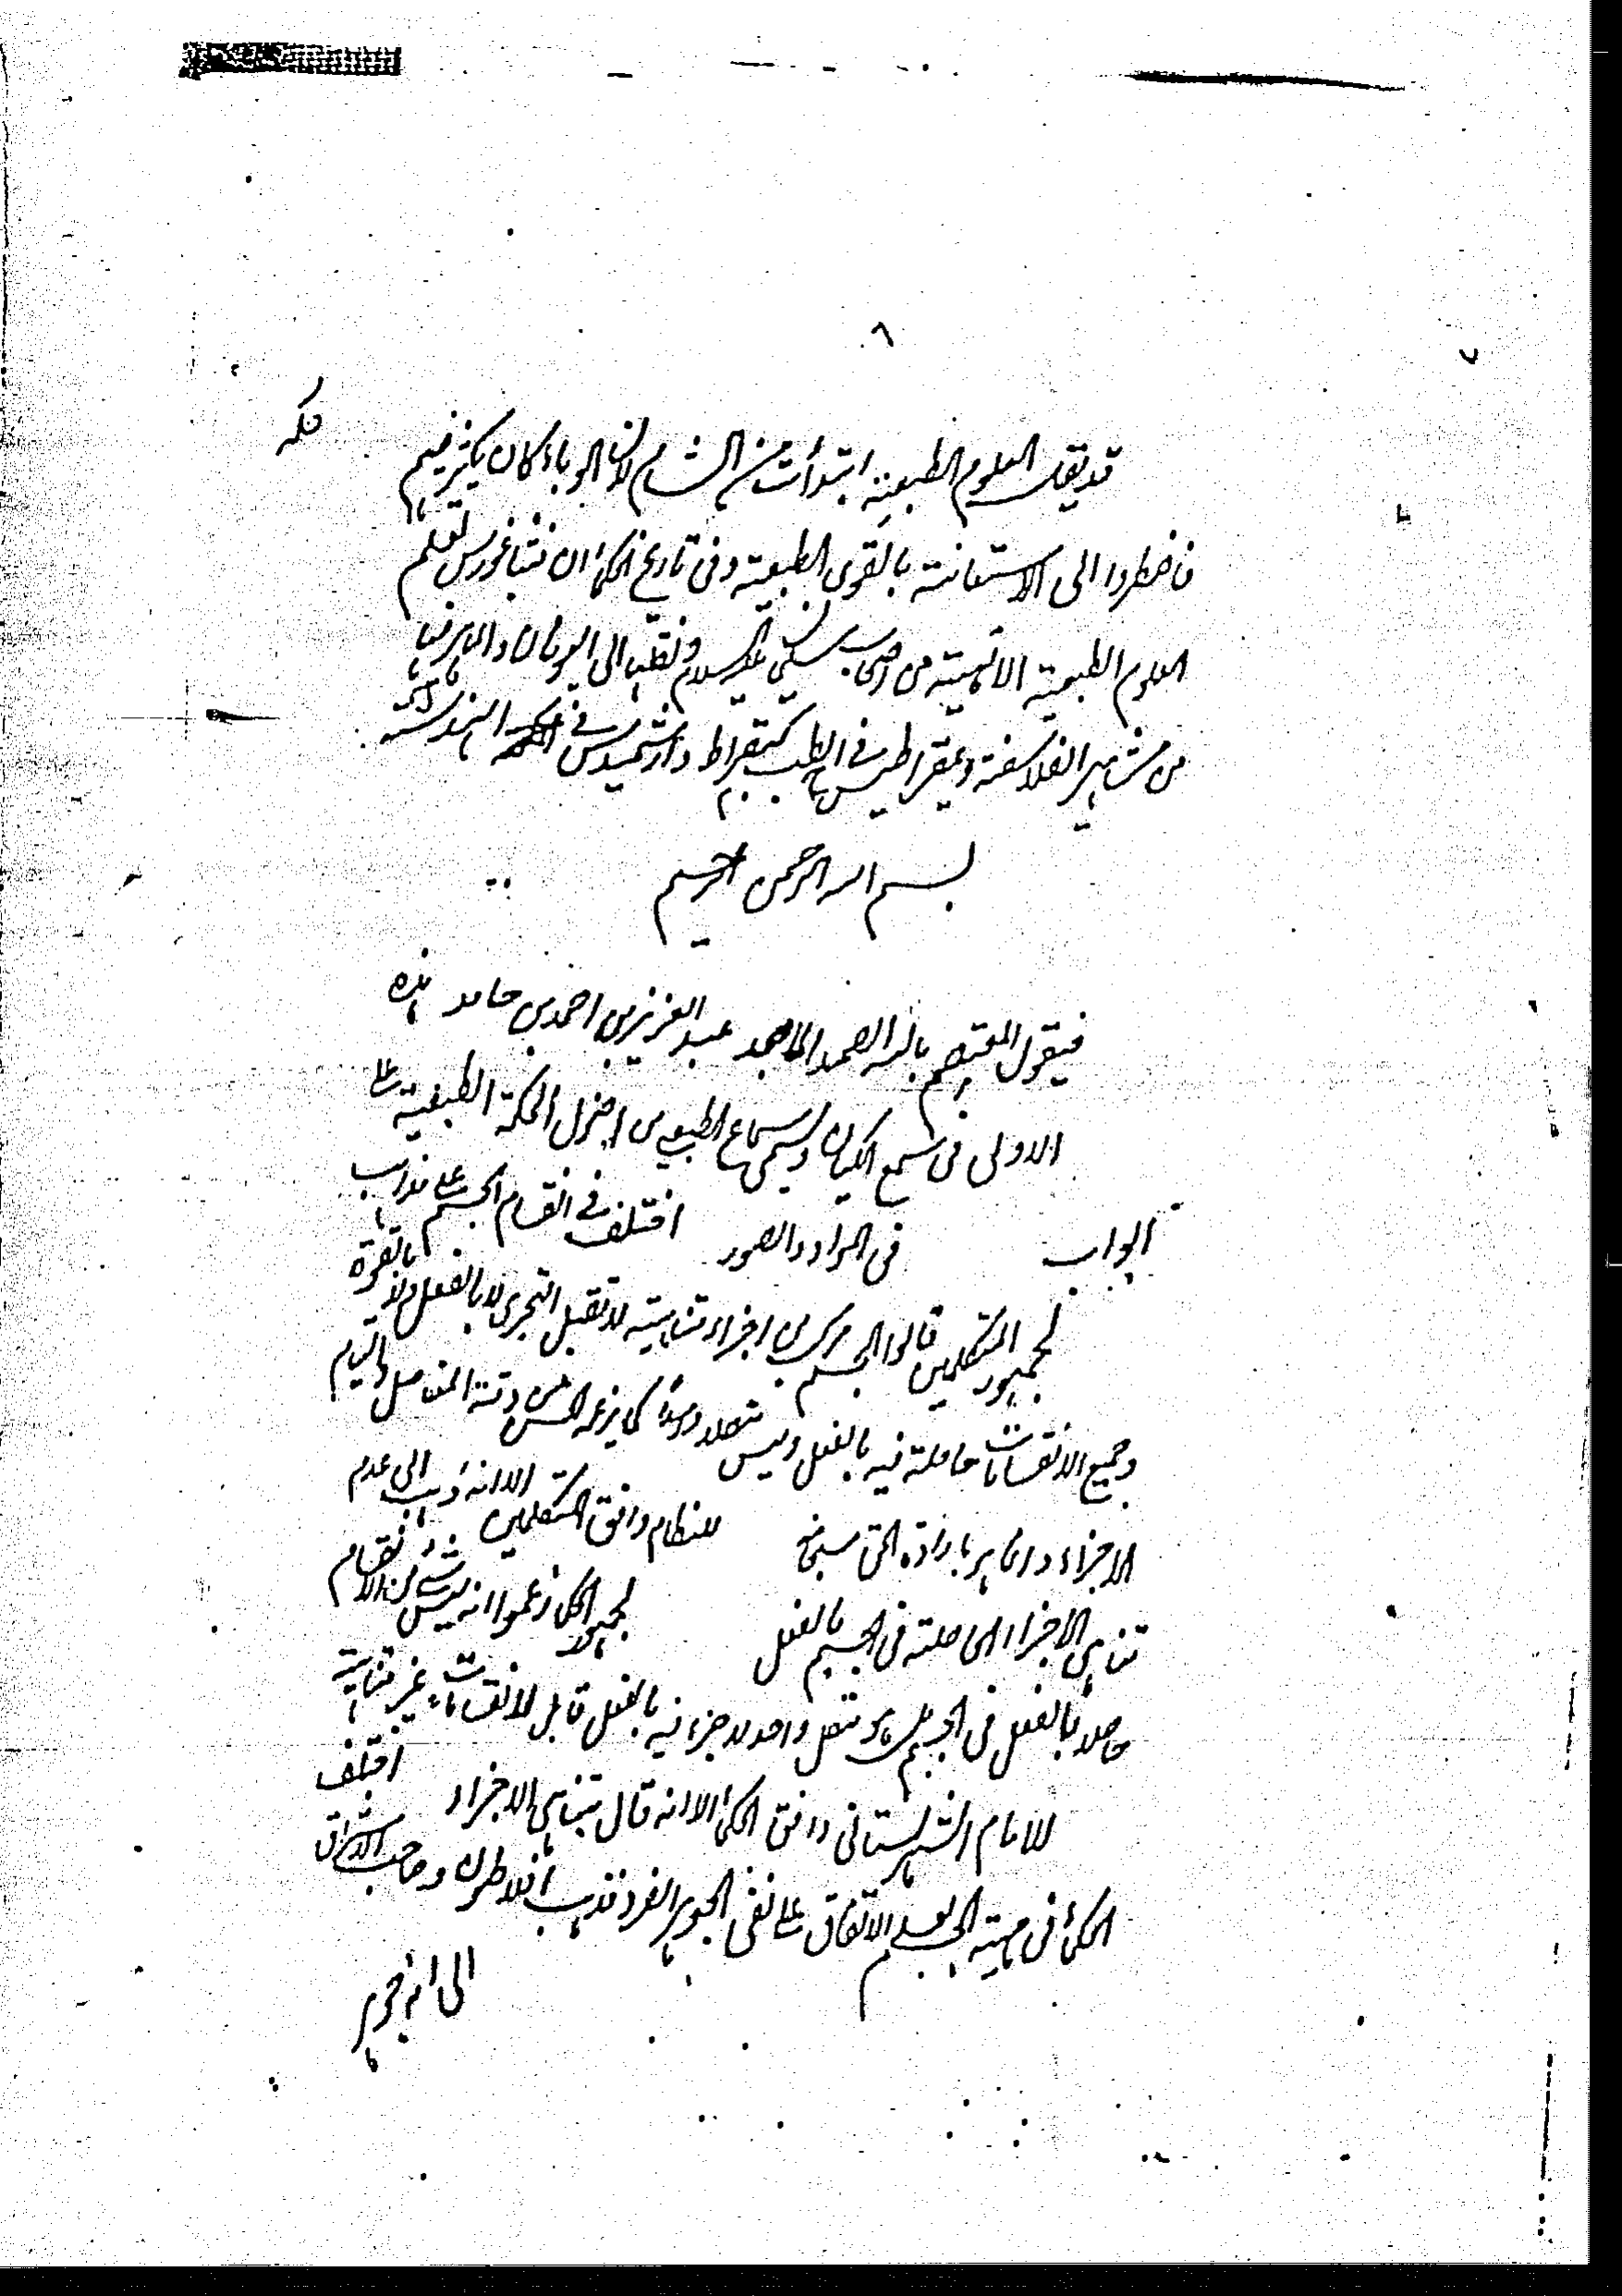 ٦
فكه
قد يقال العلوم الطبعية ابتدأت من الشام لان الوباء كان يكثر فيهم
فاضطروا الى الاستعانة بالقوى الطبعية وفى تاريخ الحكماء ان فيثاغورس تعلم
العلوم الطبعية الالهية من اصحاب سليمن عليه السلام ونقلها الى اليونان والماهر فيها
من مشاهير الفلاسفة ديمقراطيس فى الطب كبقراط وارشميدس فى الهندسة
بسم الله الرحمن الرحيم
فيقول المعتصم بالله الصمد الماجد عبد العزيز بن احمد بن حامد هذه
الاولى فى سمع الكيان ويسمى سماع الطبيعى من اجزل الحكمة الطبعية على
ابواب فى المواد والصور اختلف فى انقسام الجسم على مذاهب
لجمهور المتكلمين قالوا الجسم مركب من اجزاء متناهية لا تقبل التجزى لا بالفعل ولا بالقوة
وجميع الانقسامات حاصلة فيه بالفعل وليس متصلا واحدا كما يزعمه الحس من دقة المفاصل والتيام
الاجزاء وانما يبرزها بارادة الحق سبحانه للنظام وافق المتكلمين الا انه ذهب الى عدم
تناهى الاجزاء الحاصلة فى الجسم بالفعل لجمهور الحكماء زعموا انه ليس شئ من الانقسام
حاصلا بالفعل فى الجسم بل هو متصل واحد لا جزء فيه بالفعل قابل لانقسامات غير متناهية
للامام الشهرستانى وافق الحكماء الا انه قال بتناهى الاجزاء اختلف
الحكماء فى مهية الجسم بعد الاتفاق على نفى الجوهر الفرد فذهب افلاطون وصاحب الاشراق
الى انه جوهر